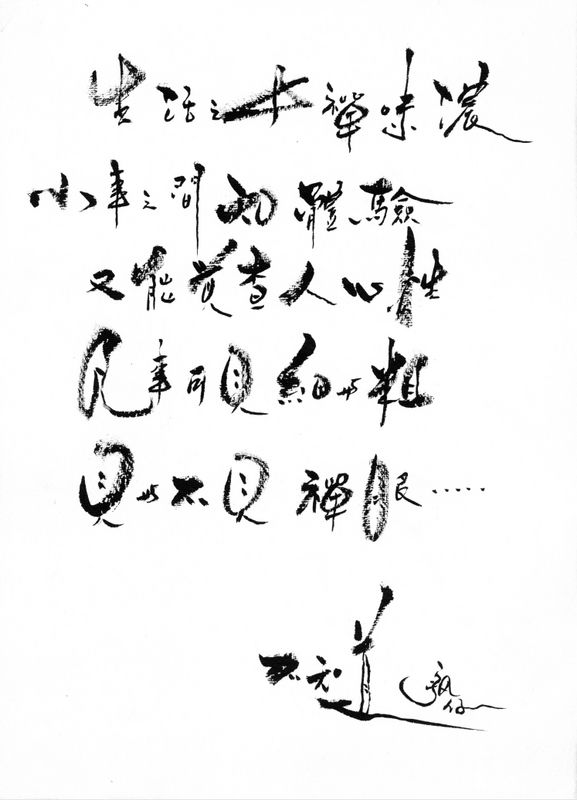 生活之中禪味濃
小事之間體驗
又能覺查人心性
凡事可見細與粗
見與不見 禪眼.....
不知道